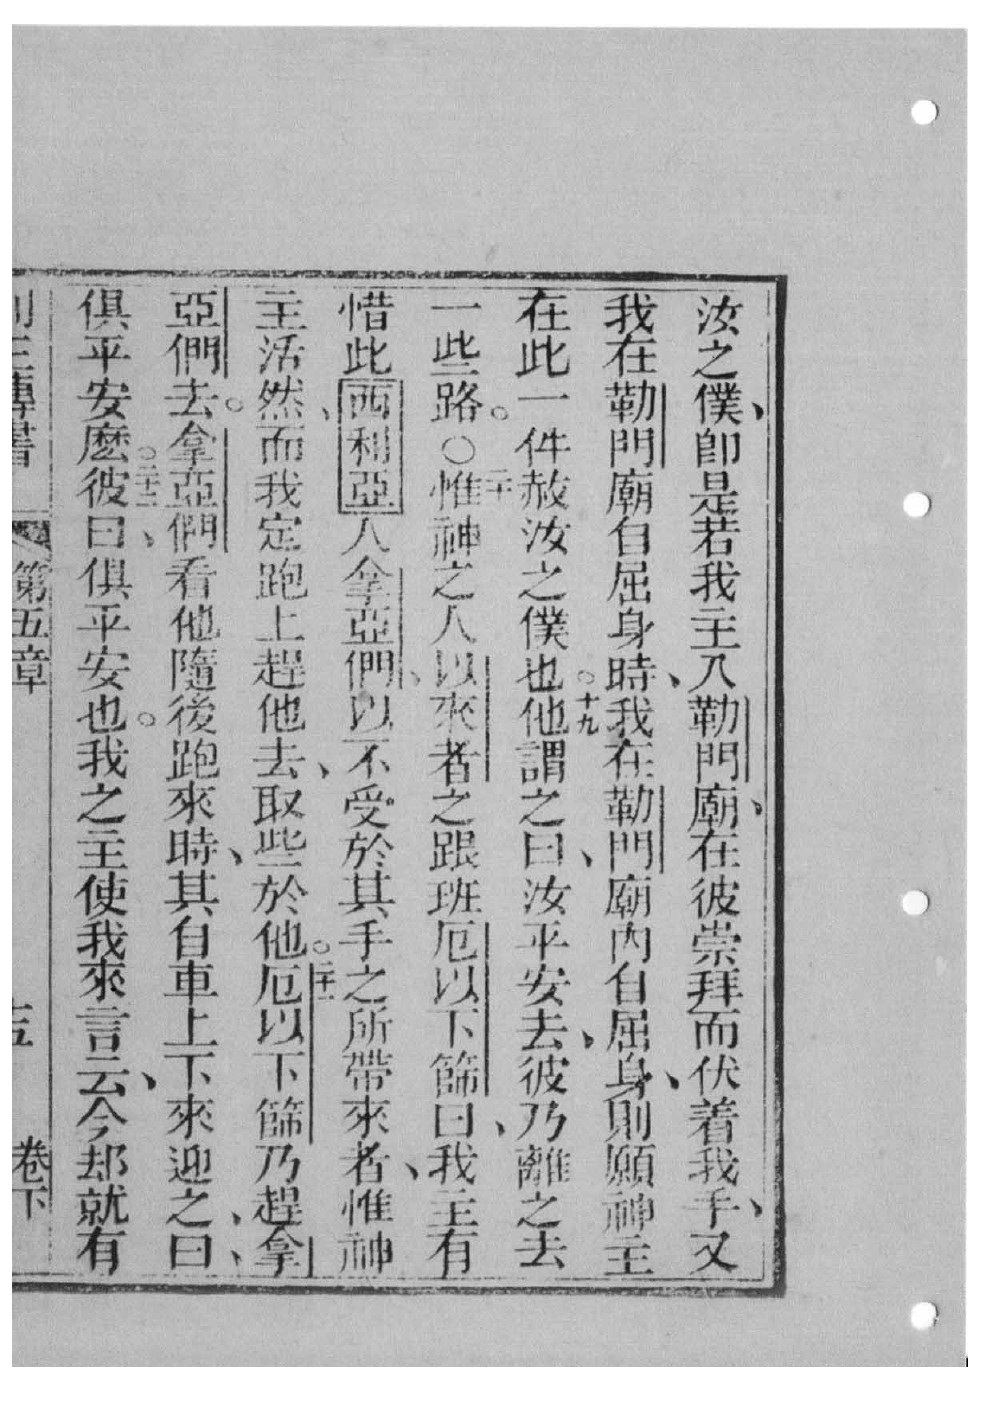 汝之僕、卽是若我主入勒門廟、在彼崇拜而伏着我手、又
我在勒門廟自屈身時、我在勒門廟內自屈身、則願神主
在此一件赦汝之僕也。十九他謂之曰、汝平安去、彼乃離之去
一些路。○二十惟神之人以來者之跟班厄以下篩曰、我主有
惜此西利亞人拿亞們、以不受於其手之所帶來者、惟神
主活然、而我定跑上趕他去、取些於他。二十一厄以下篩乃趕拿
亞們去。拿亞們看他隨後跑來時、其自車上下來迎之、曰、
俱平安麽。二十二彼曰、俱平安也。我之主使我來言云、今却就有
列王傳書 第五章 五 卷下